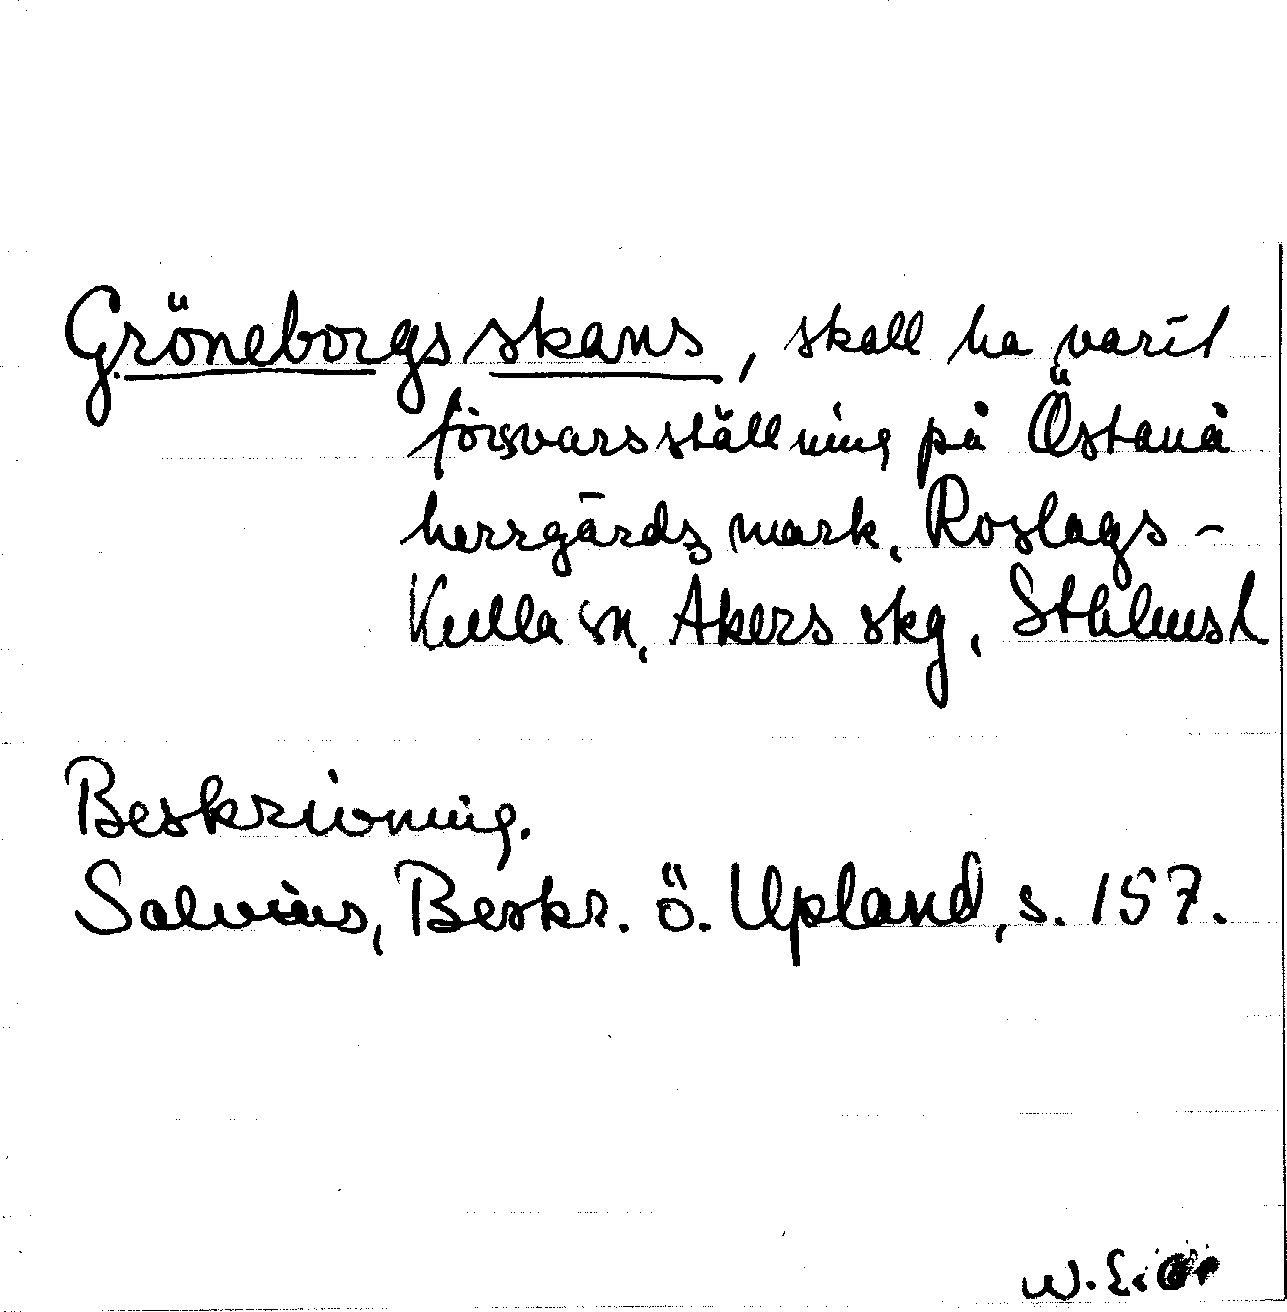 Gröneborgs skans, skall ha varit
försvarsställning på Östanå
herrgårds mark, Roslags-
Kulla sn, Åkers skg, Sthlmsl
Beskrivning.
Salvius, Beskr. ö. Upland, s. 157.
W. E.